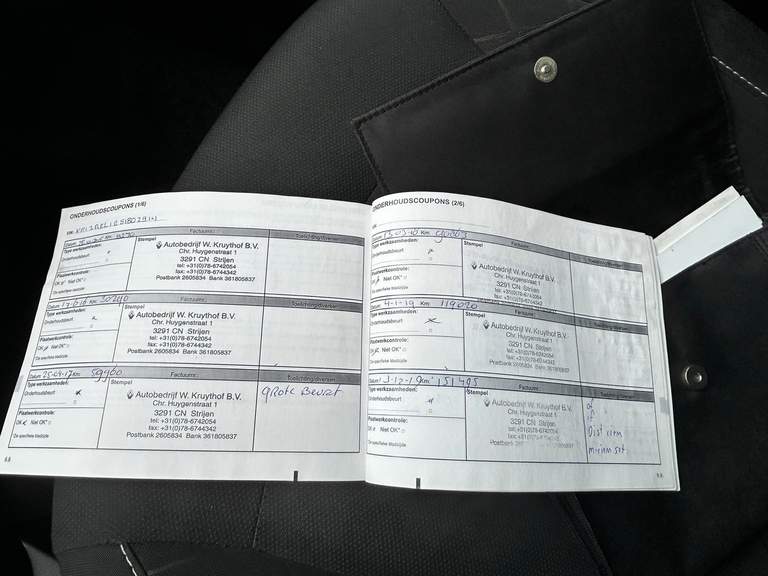 ONDERHOUDSCOUPONS (1/6)
Datum Km Factuurnr.: Toelichting/diversen
Type werkzaamheden:
Onderhoudsbeurt
Plaatwerkcontrole:
OK Niet OK*
Zie specifieke bladzijde
Stempel
Autobedrijf W. Kruythof B.V.
Chr. Huygenstraat 1
3291 CN Strijen
tel: +31(0)78-6742054
fax: +31(0)78-6744342
Postbank 2605834 Bank 361805837
Datum Km 30240 Factuurnr.:
Type werkzaamheden:
Onderhoudsbeurt
Plaatwerkcontrole:
OK Niet OK*
Zie specifieke bladzijde
Stempel
Autobedrijf W. Kruythof B.V.
Chr. Huygenstraat 1
3291 CN Strijen
tel: +31(0)78-6742054
fax: +31(0)78-6744342
Postbank 2605834 Bank 361805837
Datum 25-09-17 Km 59960 Factuurnr.: Toelichting/diversen
Type werkzaamheden:
Onderhoudsbeurt
Plaatwerkcontrole:
OK Niet OK*
Zie specifieke bladzijde
Stempel
Autobedrijf W. Kruythof B.V.
Chr. Huygenstraat 1
3291 CN Strijen
tel: +31(0)78-6742054
fax: +31(0)78-6744342
Postbank 2605834 Bank 361805837
gRote Beurt
6.8
ONDERHOUDSCOUPONS (2/6)
VIN:
Datum Km Factuurnr.:
Type werkzaamheden:
Onderhoudsbeurt
Plaatwerkcontrole:
OK Niet OK*
Zie specifieke bladzijde
Stempel
Autobedrijf W. Kruythof B.V.
Chr. Huygenstraat 1
3291 CN Strijen
tel: +31(0)78-6742054
fax: +31(0)78-6744342
Datum 4-1-19 Km 119020 Factuurnr.:
Type werkzaamheden:
Onderhoudsbeurt
Plaatwerkcontrole:
OK Niet OK*
Zie specifieke bladzijde
Stempel
Autobedrijf W. Kruythof B.V.
Chr. Huygenstraat 1
3291 CN Strijen
tel: +31(0)78-6742054
fax: +31(0)78-6744342
Datum Km 151495 Factuurnr.:
Type werkzaamheden:
Onderhoudsbeurt
Plaatwerkcontrole:
OK Niet OK*
Zie specifieke bladzijde
Stempel
Autobedrijf W. Kruythof B.V.
Chr. Huygenstraat 1
3291 CN Strijen
tel: +31(0)78-6742054
Dist riem